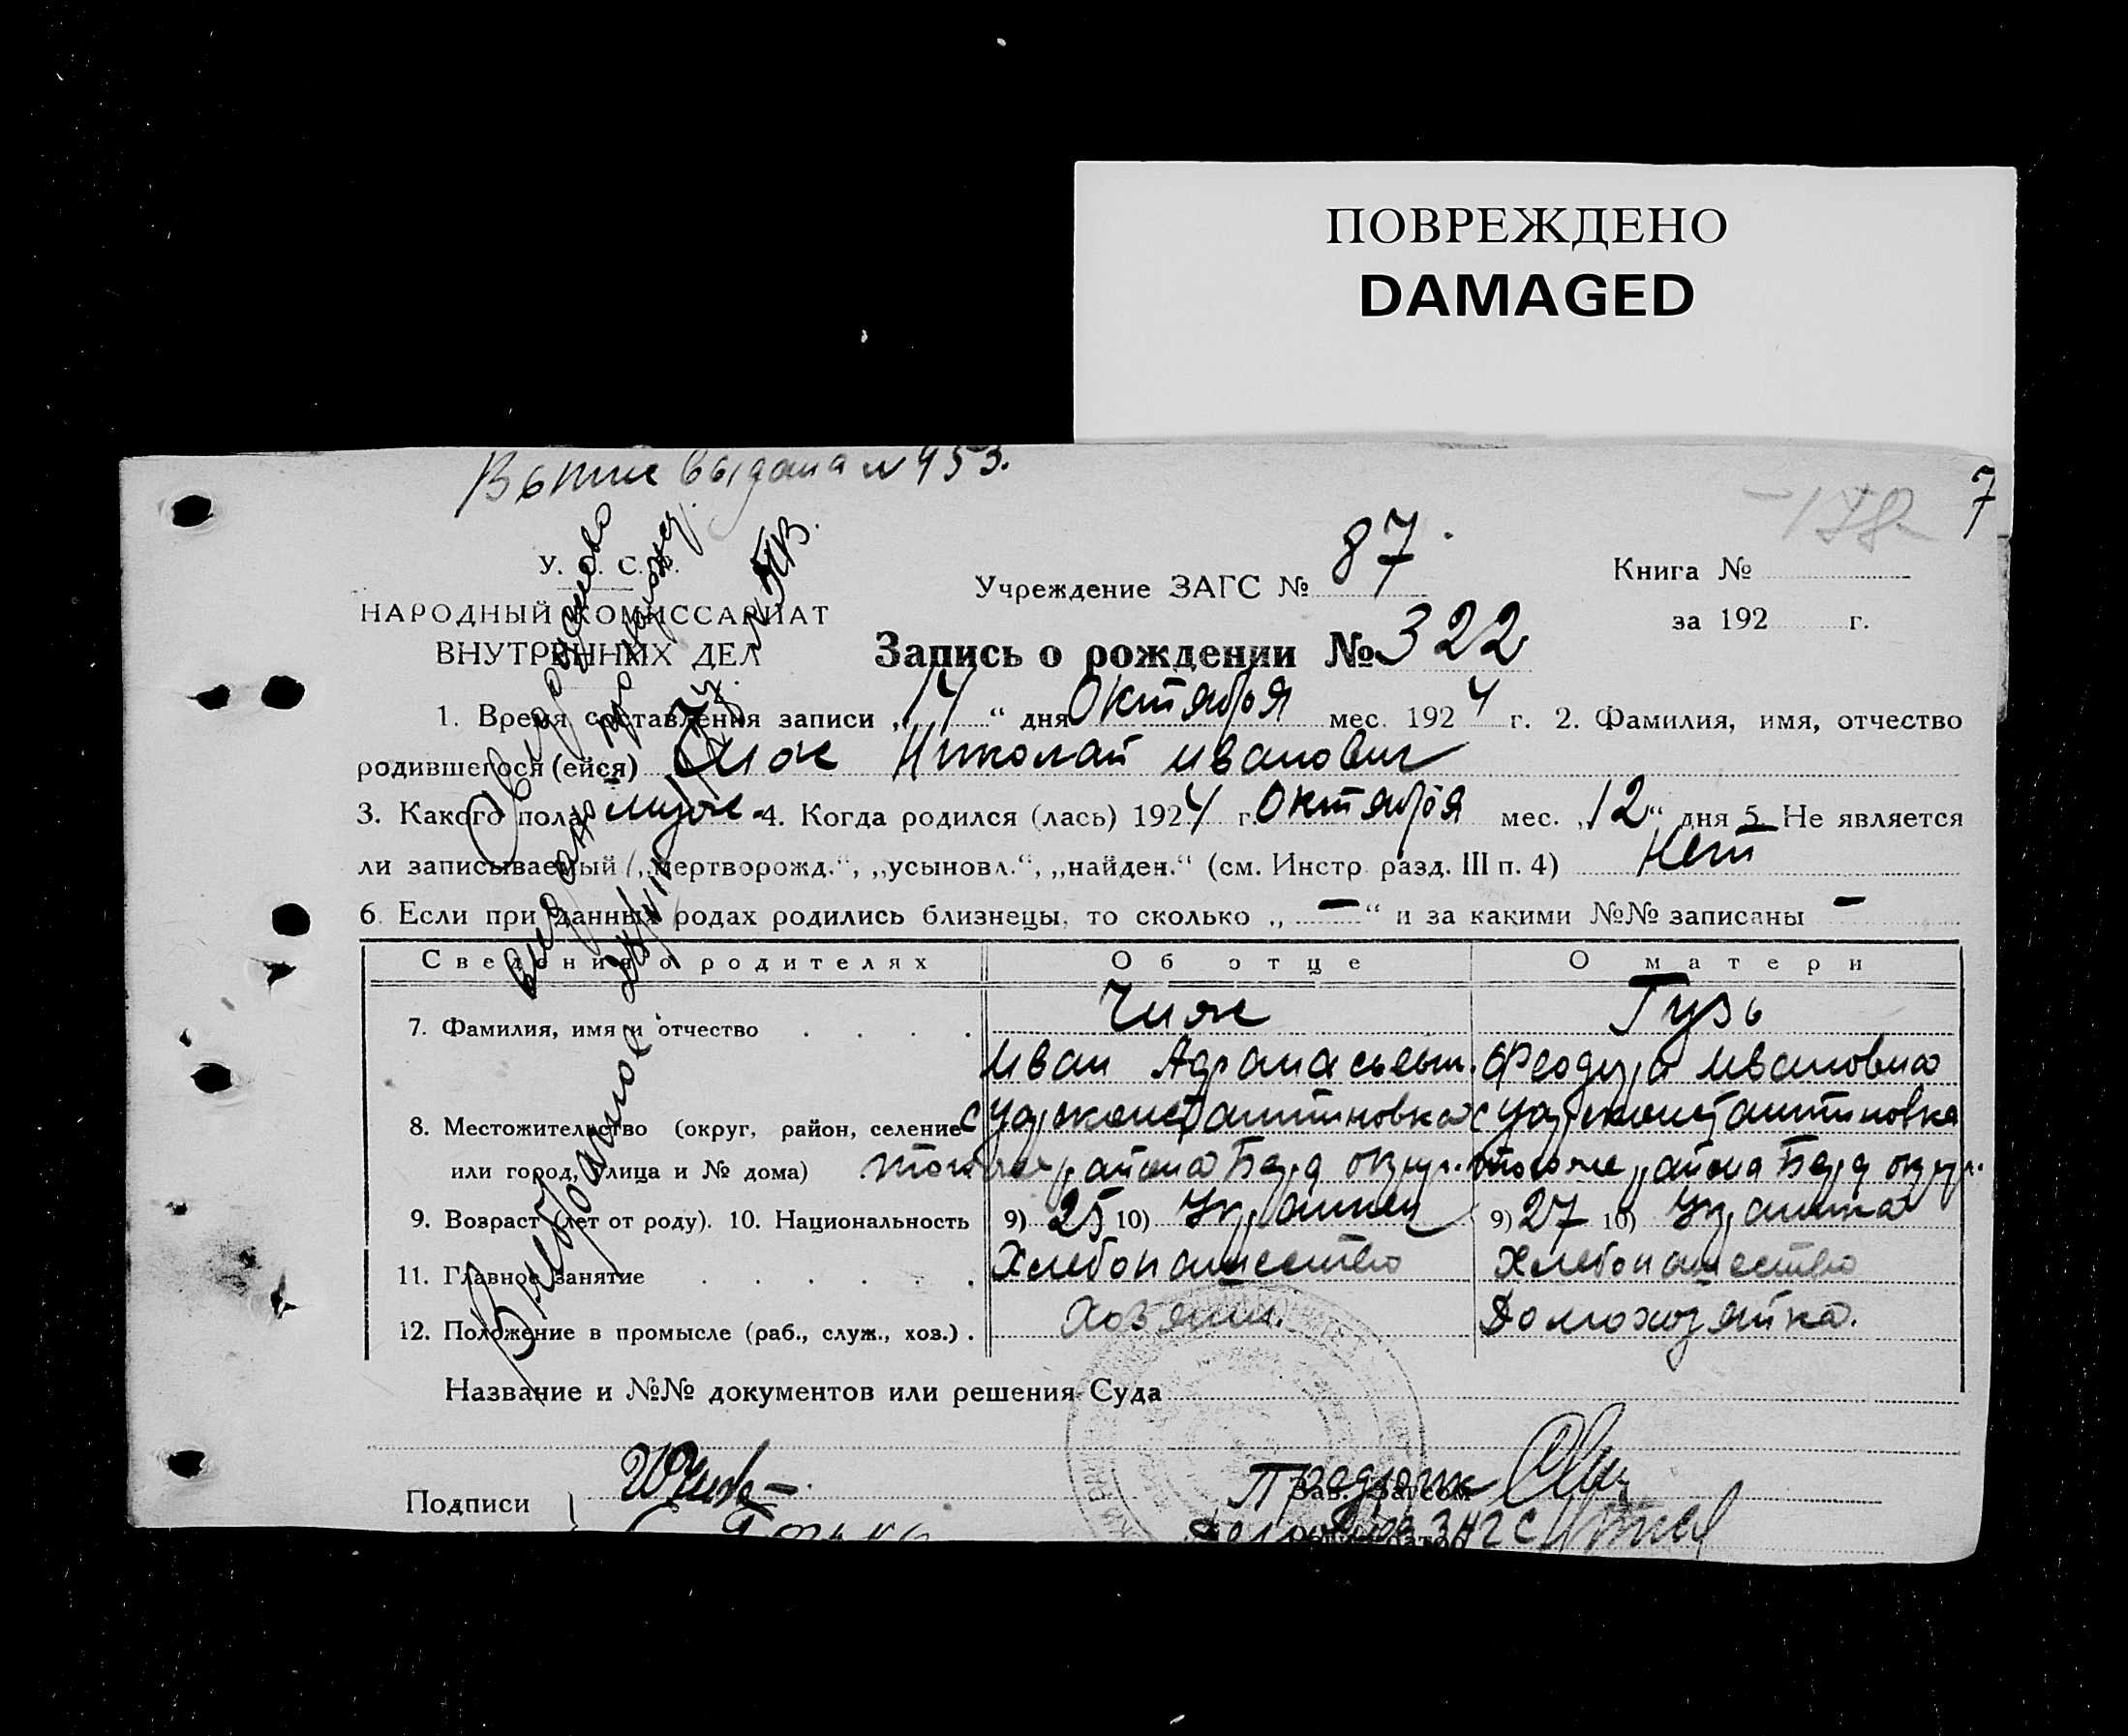 ПОВРЕЖДЕНО
DAMAGED
выдана № 453.
7
У. С. С. Р.
НАРОДНЫЙ КОМИССАРИАТ
ВНУТРЕННИХ ДЕЛ
Учреждение ЗАГС № 87.
Книга №
за 192 г.
Запись о рождении № 322
1. Время составления записи „14“ дня Октября мес. 1924 г. 2. Фамилия, имя, отчество
родившегося (ейся) Чиж Николай Иванович
3. Какого пола муж. 4. Когда родился (лась) 1924 г. Октября мес. „12“ дня 5. Не является
ли записываемый „мертворожд.“, „усыновл.“, „найден.“ (см. Инстр. разд. III п. 4) Нет
6. Если при данных родах родились близнецы, то сколько „—“ и за какими №№ записаны —
Сведения о родителях Об отце О матери
7. Фамилия, имя и отчество Чиж Гузь
Иван Афанасьевич. Феодора Ивановна
8. Местожительство (округ, район, селение с Цареконстантиновка с Цареконстантиновка
или город, улица и № дома) того же района Берд округ. того же района Берд округ.
9. Возраст (лет от роду). 10. Национальность 9) 25 10) Украинец 9) 27 10) Украинка
11. Главное занятие Хлебопашество Хлебопашество
12. Положение в промысле (раб., служ., хоз.) Хозяин. Домохозяйка.
Название и №№ документов или решения Суда
Подписи
Зав. Загсом